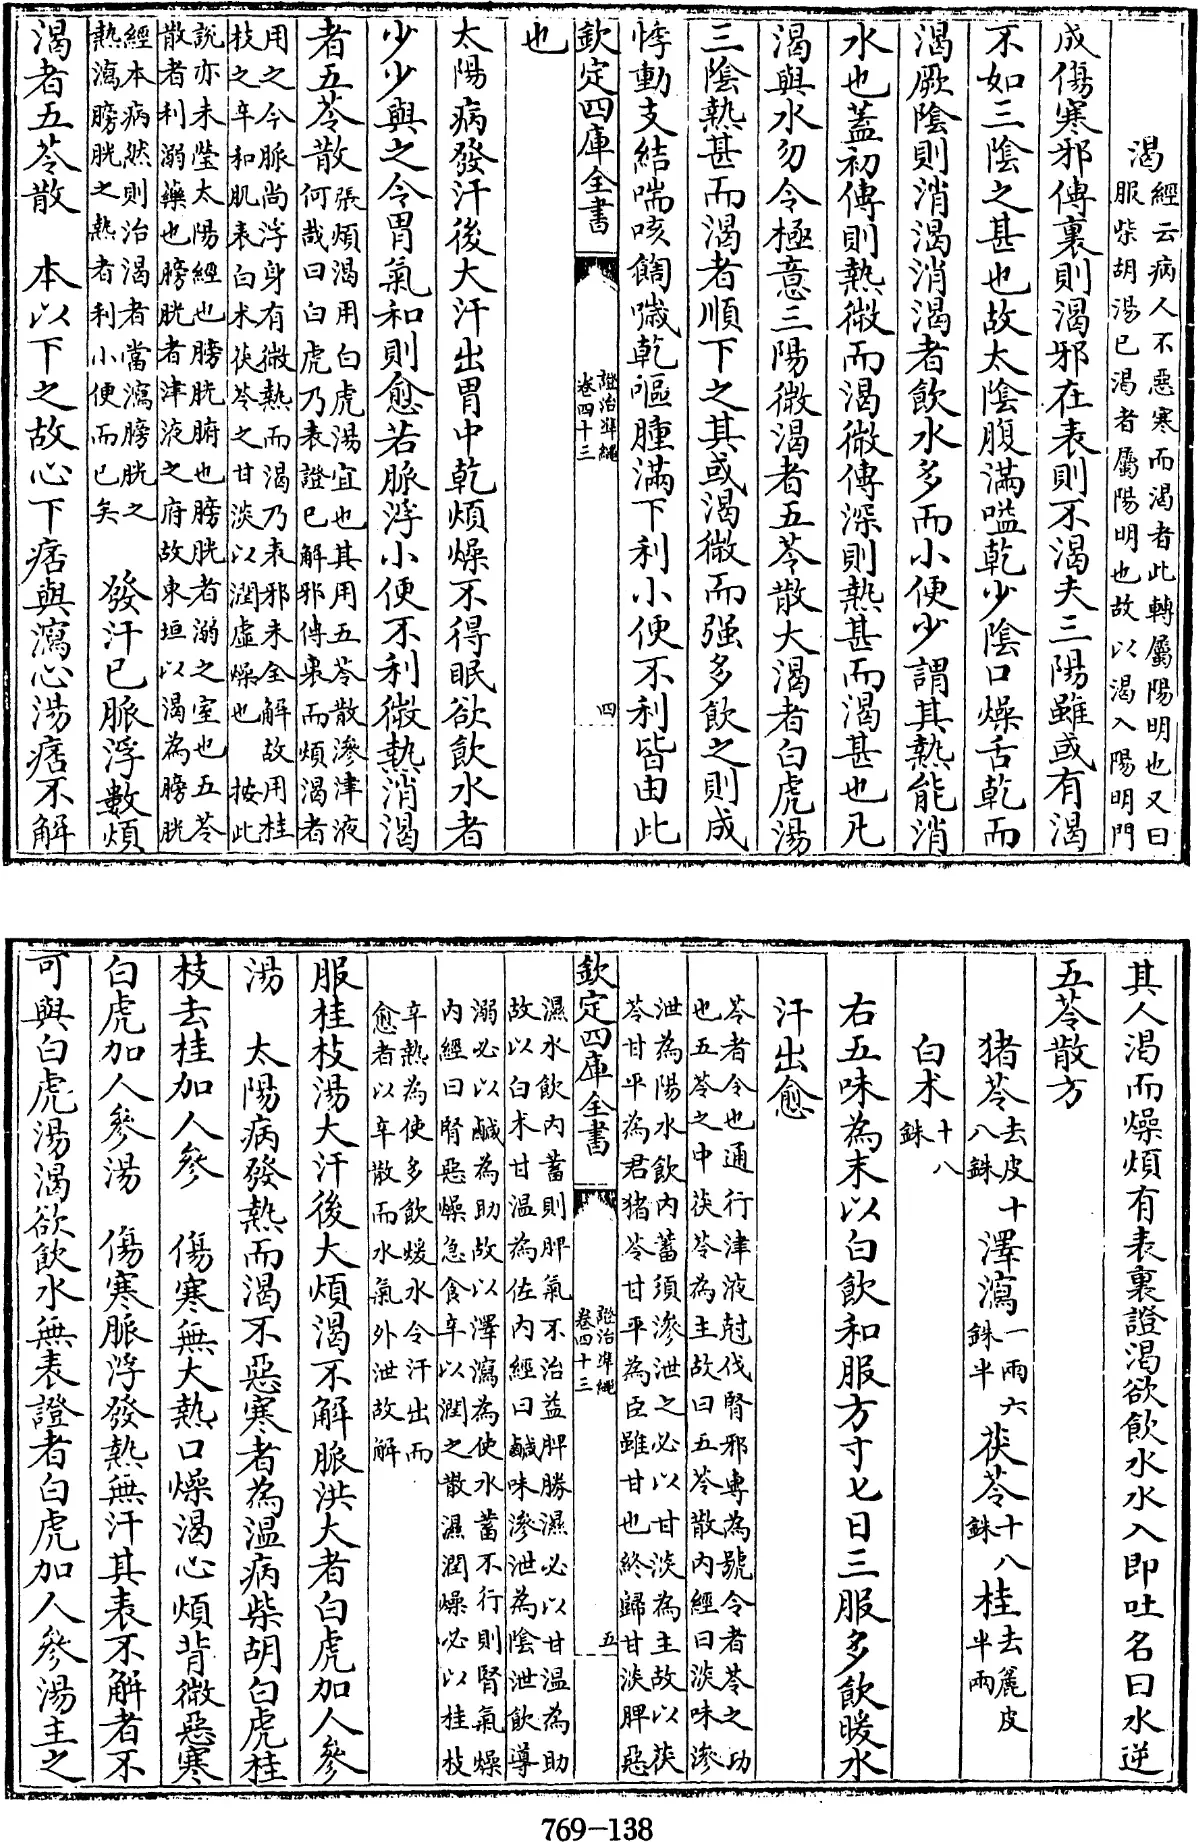 渴經云病人不惡寒而渴者此轉屬陽明也又曰
服柴胡湯已渴者屬陽明也故以渴入陽明門
成傷寒邪傳裏則渴邪在表則不渴夫三陽雖或有渴
不如三陰之甚也故太陰腹滿嗌乾少陰口燥舌乾而
渴厥陰則消渴消渴者飲水多而小便少謂其熱能消
水也蓋初傳則熱微而渴微傳深則熱甚而渴甚也凡
渴與水勿令極意三陽微渴者五苓散大渴者白虎湯
三陰熱甚而渴者順下之其或渴微而强多飲之則成
悸動支結喘咳餲噦乾嘔腫滿下利小便不利皆由此
欽定四庫全書
證治凖繩
卷四十三
四
也
太陽病發汗後大汗出胃中乾煩燥不得眠欲飲水者
少少與之令胃氣和則愈若脈浮小便不利微熱消渴
者五苓散張煩渴用白虎湯宜也其用五苓散滲津液
何哉曰白虎乃表證已解邪傳裏而煩渴者
用之今脈尚浮身有微熱而渴乃表邪未全解故用桂
枝之辛和肌表白术茯苓之甘淡以潤虛燥也 按此
說亦未瑩太陽經也膀胱腑也膀胱者溺之室也五苓
散者利溺藥也膀胱者津液之府故東垣以渴為膀胱
經本病然則治渴者當瀉膀胱之
熱瀉膀胱之熱者利小便而已矣 發汗已脈浮數煩
渴者五苓散 本以下之故心下痞與瀉心湯痞不解
其人渴而燥煩有表裏證渴欲飲水水入即吐名曰水逆
五苓散方
猪苓去皮十八銖 澤瀉一兩六銖半 茯苓十八銖 桂去麄皮半兩
白术十八銖
右五味為末以白飲和服方寸七日三服多飲暖水
汗出愈
苓者令也通行津液尅伐腎邪専為號令者苓之功
也五苓之中茯苓為主故曰五苓散内經曰淡味滲
泄為陽水飲内蓄須滲泄之必以甘淡為主故以茯
苓甘平為君猪苓甘平為臣雖甘也終歸甘淡脾惡
欽定四庫全書
證治凖繩
卷四十三
五
濕水飲内蓄則脾氣不治益脾勝濕必以甘温為助
故以白术甘温為佐内經曰鹹味滲泄為陰泄飲導
溺必以鹹為助故以澤瀉為使水蓄不行則腎氣燥
内經曰腎惡燥急食辛以潤之散濕潤燥必以桂枝
辛熱為使多飲煖水令汗出而
愈者以辛散而水氣外泄故解
服桂枝湯大汗後大煩渴不解脈洪大者白虎加人參
湯 太陽病發熱而渴不惡寒者為温病柴胡白虎桂
枝去桂加人參 傷寒無大熱口燥渴心煩背微惡寒
白虎加人參湯 傷寒脈浮發熱無汗其表不解者不
可與白虎湯渴欲飲水無表證者白虎加人參湯主之
769-138